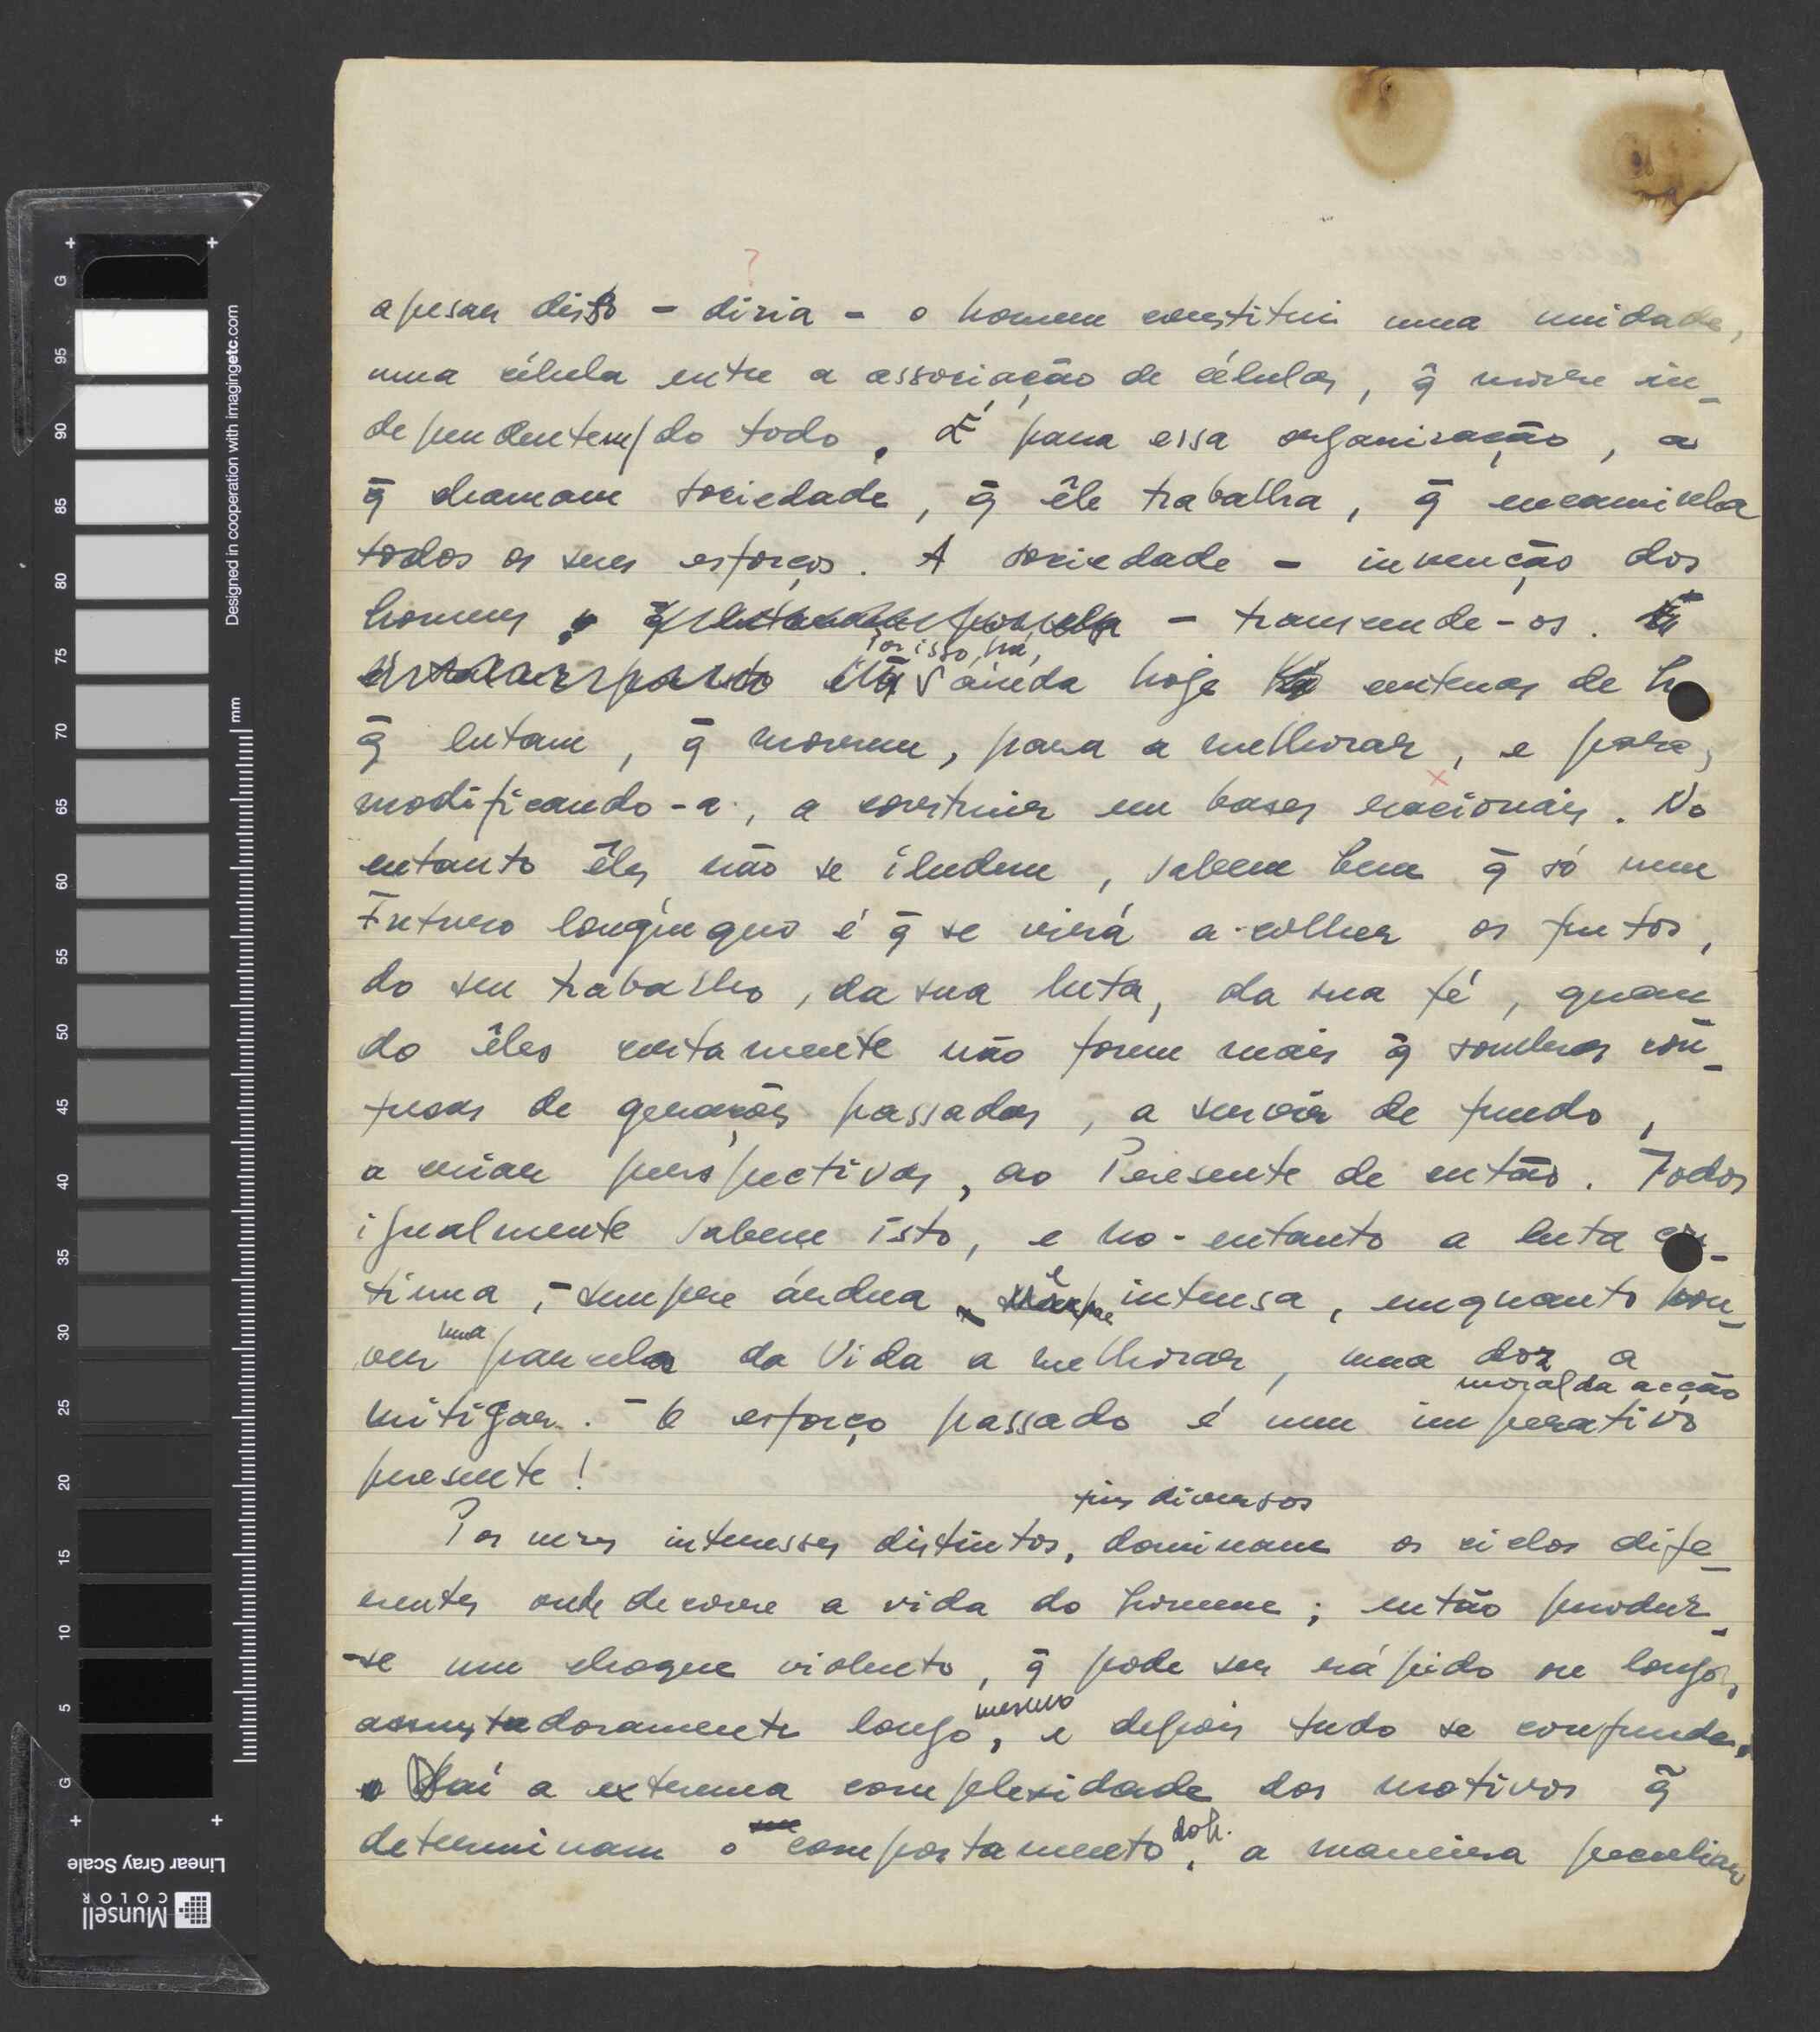 apesar disso - diria - o homem constitui uma unidade,
uma célula entre a associação de células, q̃ morre in-
dependentem/ do todo. É para essa organização, a
q̃ chamam sociedade, q̃ êle trabalha, q̃ encaminha
todos os seus esforços. A sociedade - invenção dos
homens - transcende-os.
Por isso, há,
ainda hoje centenas de h
q̃ lutam, q̃ morrem, para a melhorar, e para,
modificando-a, a construir em bases racionais. No
entanto êles não se iludem, sabem bem q̃ só num
Futuro longínquo é q̃ se virá a colher os frutos,
do seu trabalho, da sua luta, da sua fé, quan
do êles certamente não forem mais q̃ sombras con-
fusas de gerações passadas, a servir de fundo,
a criar perspectivas, ao Presente de então. Todos
igualmente sabem isto, e no-entanto a luta con-
tinua, - sempre árdua e intensa, emquanto hou-
ver uma parcela da Vida a melhorar, uma dor a
moral da acção
mitigar. - O esforço passado é um imperativo
presente!
fins diversos
Por vezes interesses distintos, dominam os ciclos dife-
rentes onde decorre a vida do homem; então produz-
-se um choque violento, q̃ pode ser rápido ou longo,
mesmo
assustadoramente longo, e depois tudo se confunde.
Daí a extrema complexidade dos motivos q̃
determinam o comportamento do h., a maneira peculiar
?
x
Designed in cooperation with imagingetc.com
mm
G 95 90 85 80 75 70 65 60 55 50 45 40 35 30 25 20 15 10 5 G
Linear Gray Scale
Munsell
COLOR